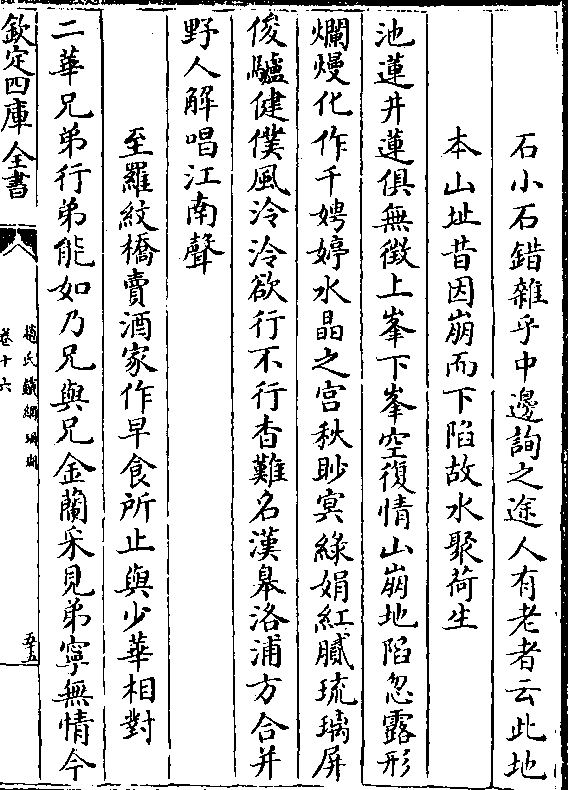 石小石錯雜乎中邊詢之途人有老者云此地
本山址昔因崩而下陷故水聚荷生
池蓮井蓮俱無徵上峯下峯空復情山崩地陷忽露形
爛熳化作千娉婷水晶之宫秋眇冥綠娟紅膩琉璃屏
俊驢健僕風泠泠欲行不行杳難名漢皋洛浦方合并
野人解唱江南聲
至羅紋橋賣酒家作早食所止與少華相對
二華兄弟行弟能如乃兄與兄金蘭采見弟寧無情今
欽定四庫全書
趙氏鐵網珊瑚
卷十六
五五